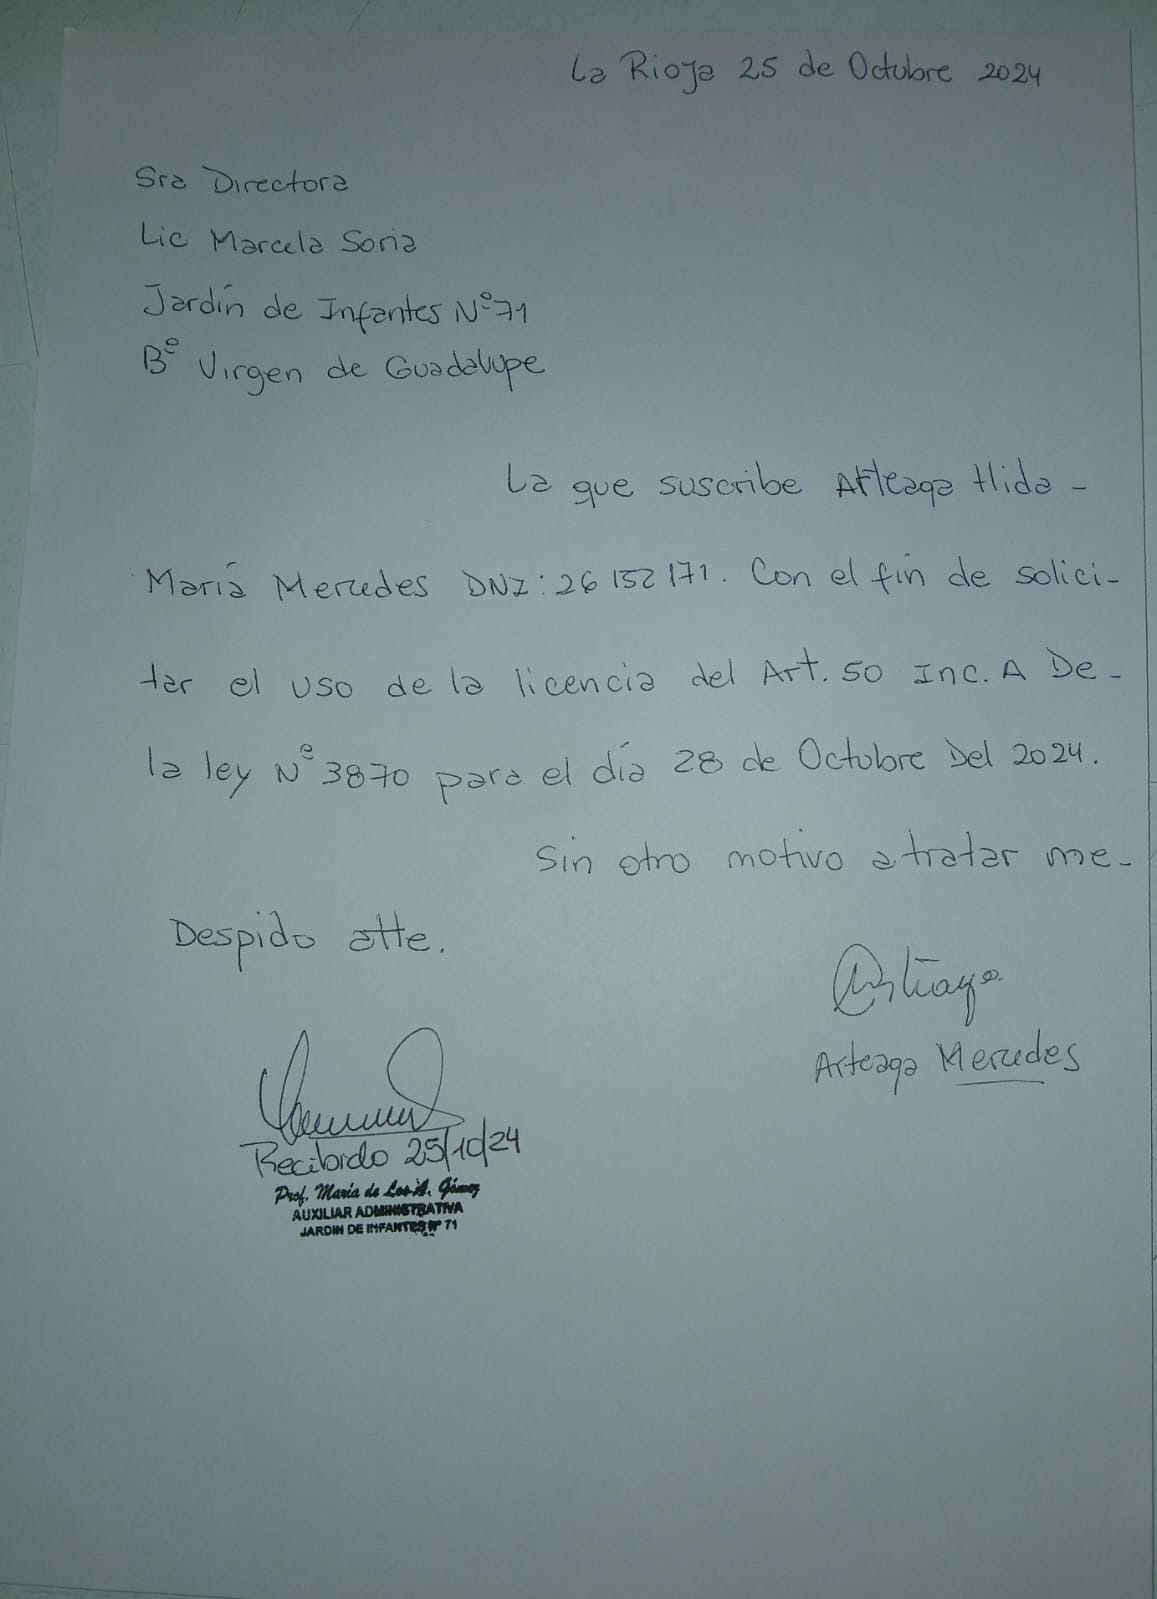 La Rioja 25 de Octubre 2024
Sra Directora
Lic Marcela Soria
Jardín de Infantes N° 71
B° Virgen de Guadalupe
La que suscribe Arteaga Hida -
María Mercedes DNI: 26 152 171. Con el fin de solici-
tar el uso de la licencia del Art. 50 Inc. A De -
la ley N° 3870 para el día 28 de Octubre Del 2024.
Sin otro motivo a tratar me -
Despido atte.
Arteaga Mercedes
Recibido 25/10/24
Prof. María de Los A. Gómez
AUXILIAR ADMINISTRATIVA
JARDIN DE INFANTES Nº 71